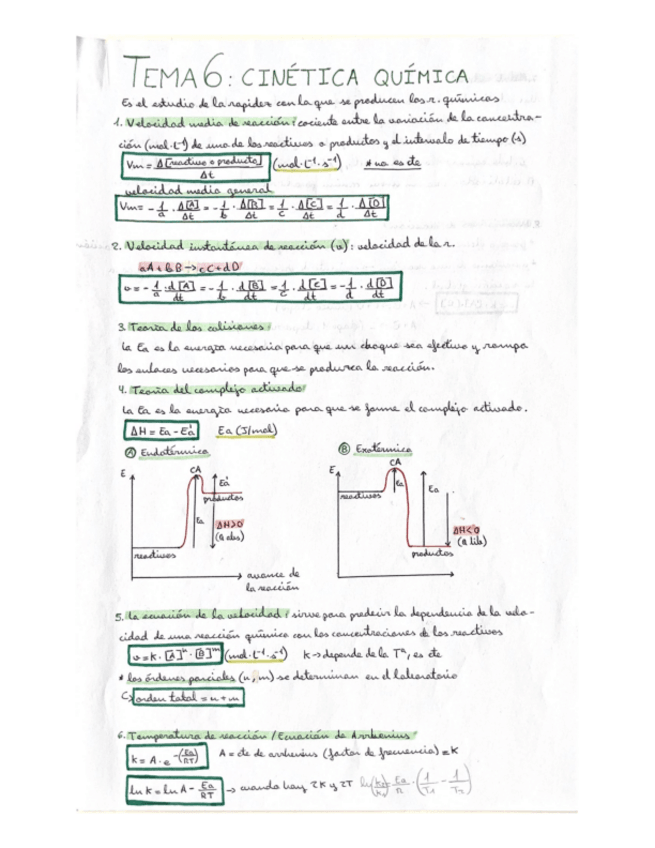 TEMA 6: CINÉTICA QUÍMICA
Es el estudio de la rapidez con la que se producen las r. químicas
1. Velocidad media de reacción: cociente entre la variación de la concentra-
ción (mol·L⁻¹) de una de los reactivos o productos y el intervalo de tiempo (s)
Vm = Δ[reactivo o producto] / Δt (mol·L⁻¹·s⁻¹) * no es cte
velocidad media general
Vm = -1/a · Δ[A]/Δt = -1/b · Δ[B]/Δt = 1/c · Δ[C]/Δt = 1/d · Δ[D]/Δt
2. Velocidad instantánea de reacción (v): velocidad de la r.
aA + bB → cC + dD
v = -1/a · d[A]/dt = -1/b · d[B]/dt = 1/c · d[C]/dt = -1/d · d[D]/dt
3. Teoría de las colisiones:
La Ea es la energía necesaria para que un choque sea efectivo y rompa
los enlaces necesarios para que se produzca la reacción.
4. Teoría del complejo activado
La Ea es la energía necesaria para que se forme el complejo activado.
ΔH = Ea - Ea' Ea (J/mol)
A Endotérmica
B Exotérmica
E CA Ea' productos
Ea ΔH>0
(Q abs)
reactivos
avance de
la reacción
E CA
reactivos Ea Ea
ΔH<0
(Q lib)
productos
5. La ecuación de la velocidad: sirve para predecir la dependencia de la velo-
cidad de una reacción química con las concentraciones de los reactivos
v = k · [A]ⁿ · [B]ᵐ (mol·L⁻¹·s⁻¹) k → depende de la Tª, es cte
* los órdenes parciales (n, m) se determinan en el laboratorio
↳ orden total = n + m
6. Temperatura de reacción / Ecuación de Arrhenius
k = A · e^-(Ea/RT) A = cte de arrhenius (factor de frecuencia) = K
ln k = ln A - Ea/RT → cuando hay 2K y 2T ln(k₂/k₁) = Ea/R · (1/T₁ - 1/T₂)